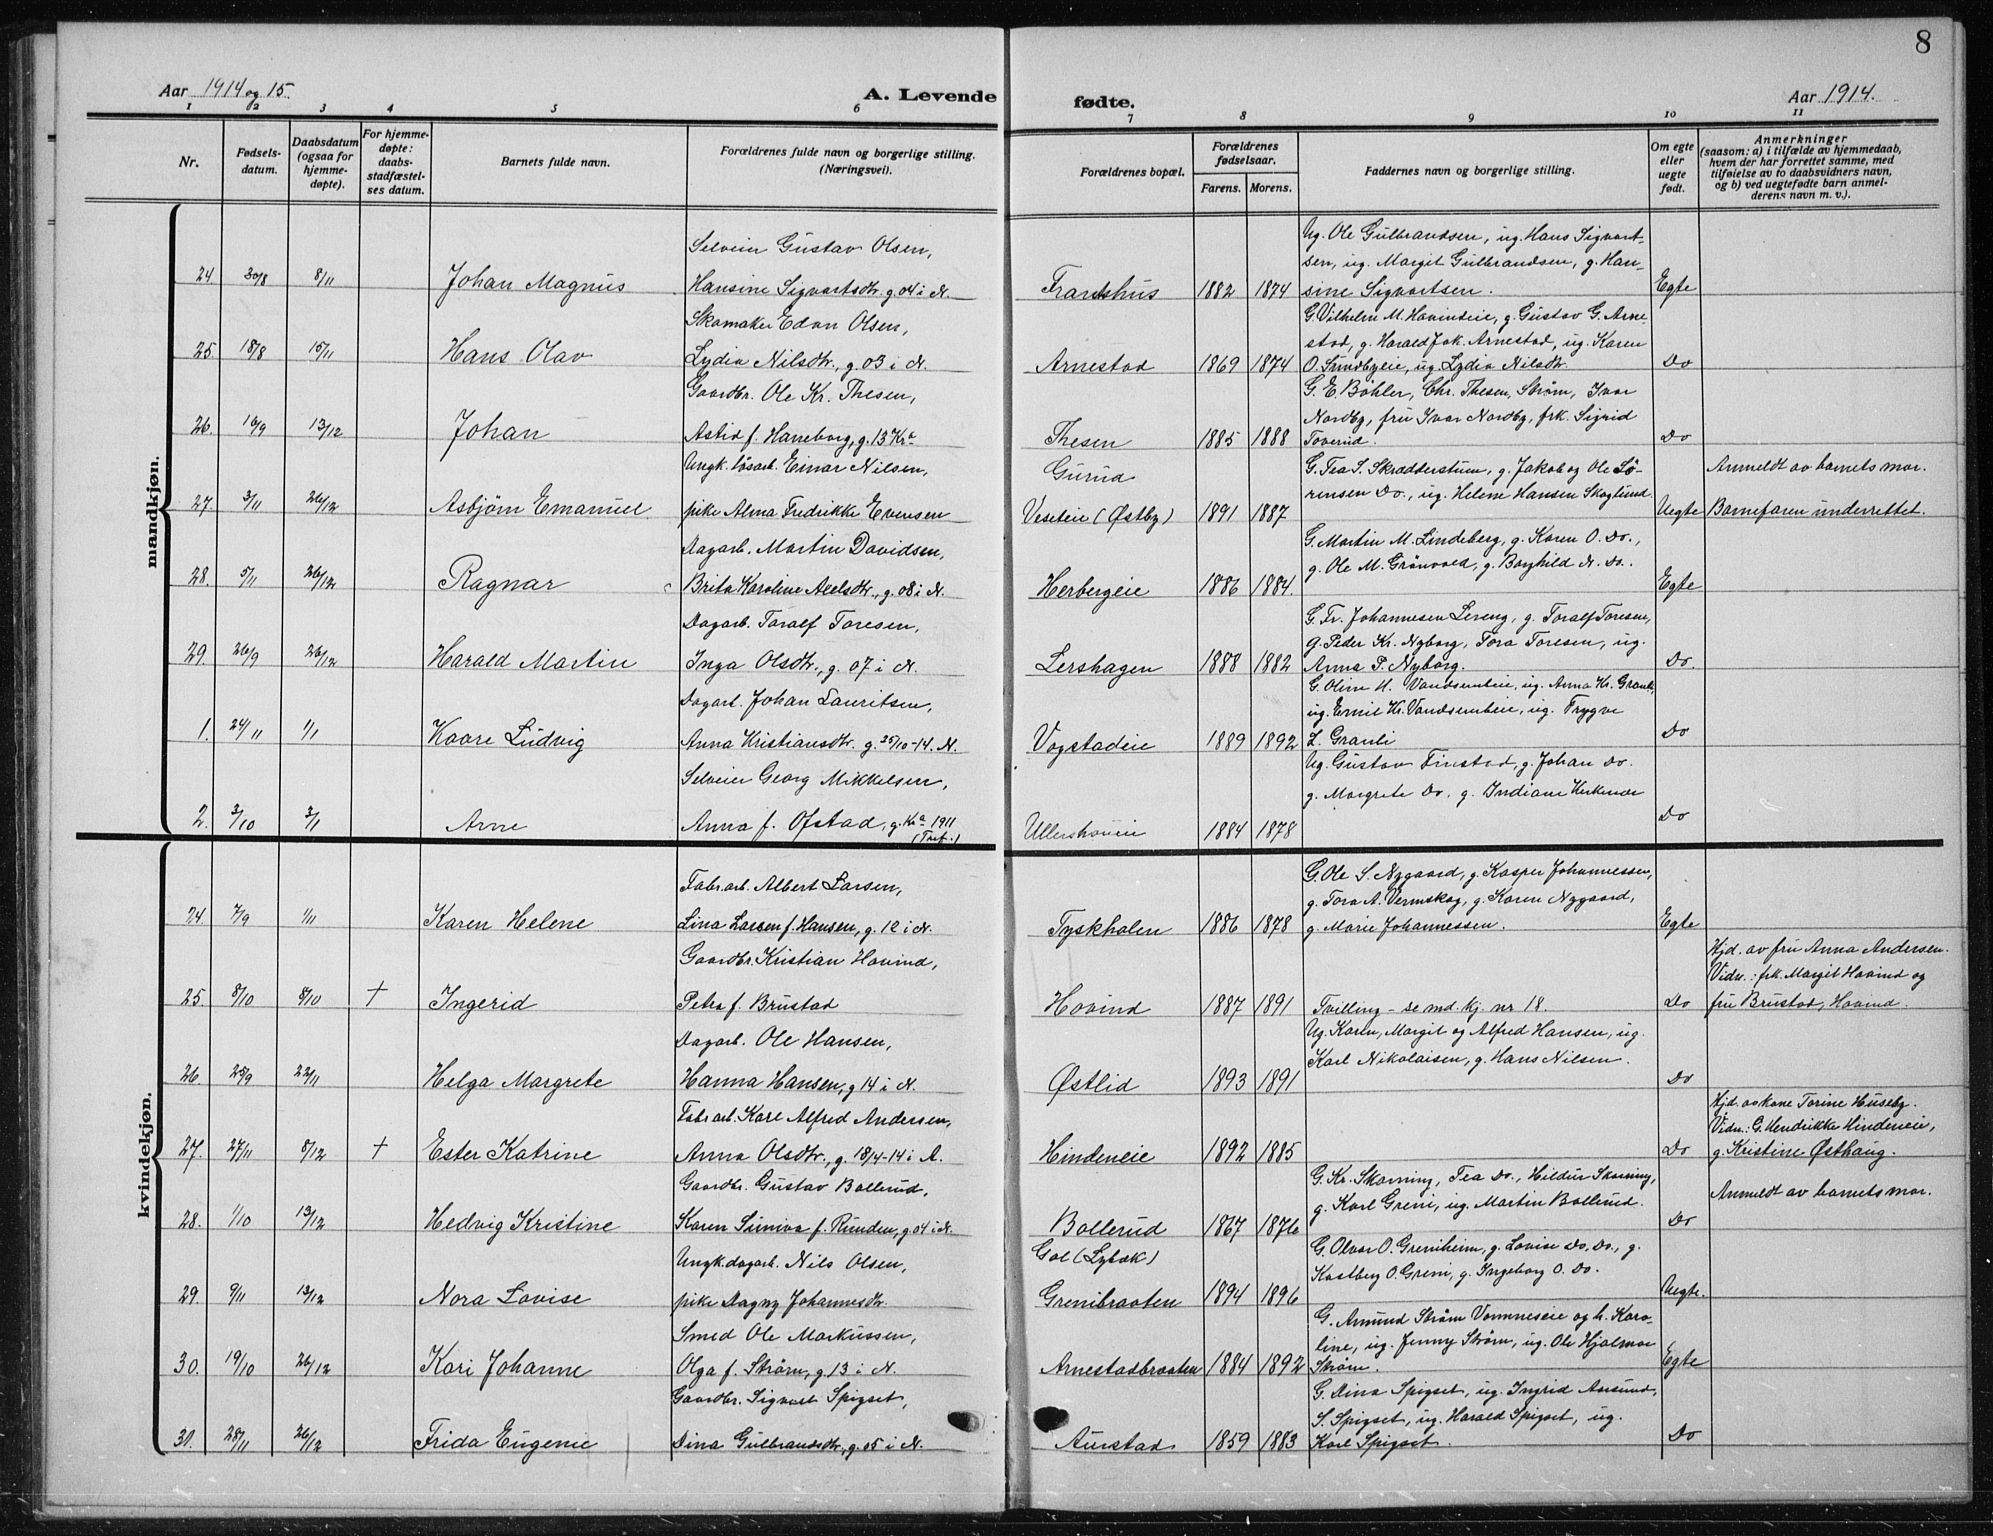 8
Aar 1914 og 15.
A. Levende
fødte.
Aar 1914.
1 2 3 4 5 6 7 8 9 10 11
Nr.
Fødsels-
datum.
Daabsdatum
(ogsaa for
hjemme-
døpte).
For hjemme-
døpte:
daabs-
stadfæstel-
ses datum.
Barnets fulde navn.
Forældrenes fulde navn og borgerlige stilling.
(Næringsvei).
Forældrenes bopæl.
Forældrenes
fødselsaar.
Farens. Morens.
Faddernes navn og borgerlige stilling.
Om egte
eller
uegte
født.
Anmerkninger
(saasom: a) i tilfælde av hjemmedaab,
hvem der har forrettet samme, med
tilføielse av to daabsvidners navn,
og b) ved uegtefødte barn anmel-
derens navn m. v.).
mandkjøn.
Selveier Gustav Olsen,
24. 30/8 8/11 Johan Magnus Hansine Sigvartsdtr. g. 04 i N. Franshus 1882 1874
Ug. Ole Gulbrandsen, ug. Hans Sigvart-
sen, ug. Margit Gulbrandsen, g. Han-
sine Sigvartsen. Egte
Skomaker Edon Olsen,
25. 18/8 15/11 Hans Olav Lydia Nilsdtr., g. 03 i N. Arnestad 1869 1874
G. Vilhelm M. Hovindeie, g. Gustav G. Arne-
stad, g. Harald Jok. Arnestad, ug. Karen
O. Sundbyeie, ug. Lydia Nilsdtr. Do
Gaardbr. Ole Kr. Thesen,
26. 16/9 13/12 Johan Astrid f. Haneborg, g. 13 Kra Thesen 1885 1888
G. E. Böhler, Chr. Thesen, Strøm, Ivar
Nordby, fru Ivar Nordby, frk. Sigrid
Toverud. Do
Ungk. løsarb. Einar Nilsen,
27. 3/11 26/12 Asbjørn Emanuel pike Alma Fredrikke Evensen
Gurud
Veseteie (Østby) 1891 1887
G. Tea S. Skrædderstuen, g. Jakob og Ole Sö-
rensen Do., ug. Helene Hansen Skoglund. Uegte
Anmeldt av barnets mor.
Barnefaren underrettet.
Dagarb. Martin Davidsen,
28. 5/11 26/12 Ragnar Brita Karoline Axelsdtr., g. 08 i N. Herbergeie 1886 1884.
G. Martin M. Lindeberg, g. Karen O. Do.,
g. Ole M. Grönvold, g. Borghild N. Do. Egte
Dagarb. Toralf Toresen,
29. 26/9 26/12 Harald Martin Inga Olsdtr., g. 07 i N. Lershagen 1888 1882
G. Fr. Johannesen Lereng, g. Toralf Toresen,
g. Peder Kr. Nyborg, Tora Toresen, ug.
Anna P. Nyborg. Do.
Dagarb. Johan Lauritsen,
1. 24/11 1/1 Kaare Ludvig Anna Kristiansdtr. g. 25/10-14. N. Vogstadeie 1889 1892
G. Oline M. Vandsembeie, ug. Anna Kr. Granli,
ug. Emil Kr. Vandsembeie, ug. Trygve
L. Granli Do
Selveier Georg Mikkelsen,
2. 3/10 3/1 Arne Anna f. Ofstad, g. Kra 1911
(Tref.) 1884 1878
Ug. Gustav Finstad, g. Johan Do.
g. Margrete Do. g. Indiane Kirkemoe Do
kvindekjøn.
Fabr.arb. Albert Larsen,
24. 7/9 1/11 Karen Helene Lina Larsen f. Hansen, g. 12 i N. Tyskholen 1886 1878
G. Ole S. Nygaard, g. Kasper Johannessen,
g. Tora A. Vermskog, g. Karen Nygaard,
g. Marie Johannessen. Egte
Gaardbr. Kristian Hovind,
25 8/10 8/10 † Ingerid Petra f. Brustad Hovind 1887 1891
Tvilling - se md. kj. nr 18. Do
Hjd. av fru Anna Andersen.
Vidn.: frk. Margit Hovind og
fru Brustad, Hovind.
Dagarb. Ole Hansen,
26 25/9 22/11 Helga Margrete Hanna Hansen, g 14 i N. Østlid 1893 1891
Ug. Karen, Margit og Alfred Hansen, ug.
Karl Nikolaisen, g. Hans Nilsen. Do
Fabr.arb. Karl Alfred Andersen,
27. 27/11 8/12 † Ester Katrine Anna Olsdtr., g. 18/4-14 i A. Hindeneie 1892 1885 Do
Hjd. av kone Torine Huseby.
Vidn: G. Hendrikke Hindeneie,
g. Kristine Østhaug.
Gaardbr. Gustav Bollerud,
28. 1/10 13/12 Hedvig Kristine Karen Suniva f. Runden, g. 04 i N. Bollerud 1867 1876
G. Kr. Skarning, Tea Do., Hildur Skarning,
g. Karl Greni, ug. Martin Bollerud. Do
Anmeldt av barnets mor.
Ungk. dagarb. Nils Olsen,
29. 9/11 13/12 Nora Lovise pike Dagny Johannesdtr.
Gol (Lybæk)
Grenibraaten 1894 1896
G. Olvar O. Greniheim, g. Lovise Do. Do., g.
Kastberg O. Greni, g. Ingeborg O. Do. Uegte.
Smed Ole Markussen,
30. 19/10 26/12 Kari Johanne Olga f. Strøm, g. 13 i N. Arnestadbraaten 1884 1892
G. Amund Strøm Vomneseie og h. Karo-
line, ug. Jenny Strøm, ug. Ole Hjalmar
Strøm. Egte
Gaardbr. Sigvart Spigset,
31. 28/11 26/12 Frida Eugenie Dina Gulbrandsdtr., g. 05 i N. Aurstad 1859 1883
G. Dina Spigset, ug. Ingrid Aursund,
S. Spigset, ug. Harald Spigset, ug.
Karl Spigset. Do